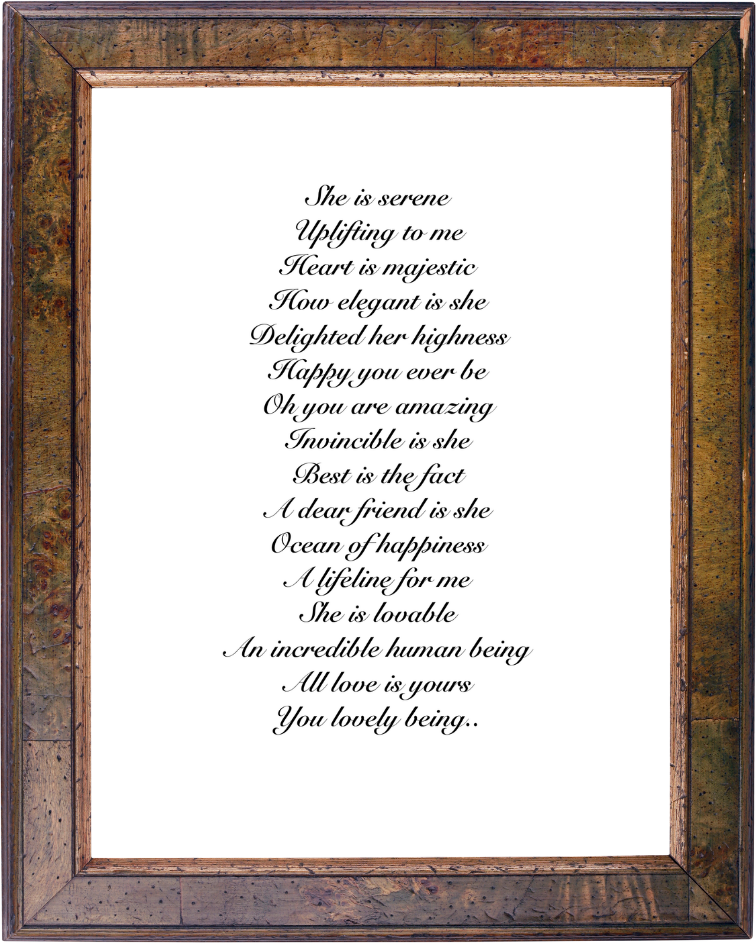 She is serene
Uplifting to me
Heart is majestic
How elegant is she
Delighted her highness
Happy you ever be
Oh you are amazing
Invincible is she
Best is the fact
A dear friend is she
Ocean of happiness
A lifeline for me
She is lovable
An incredible human being
All love is yours
You lovely being..